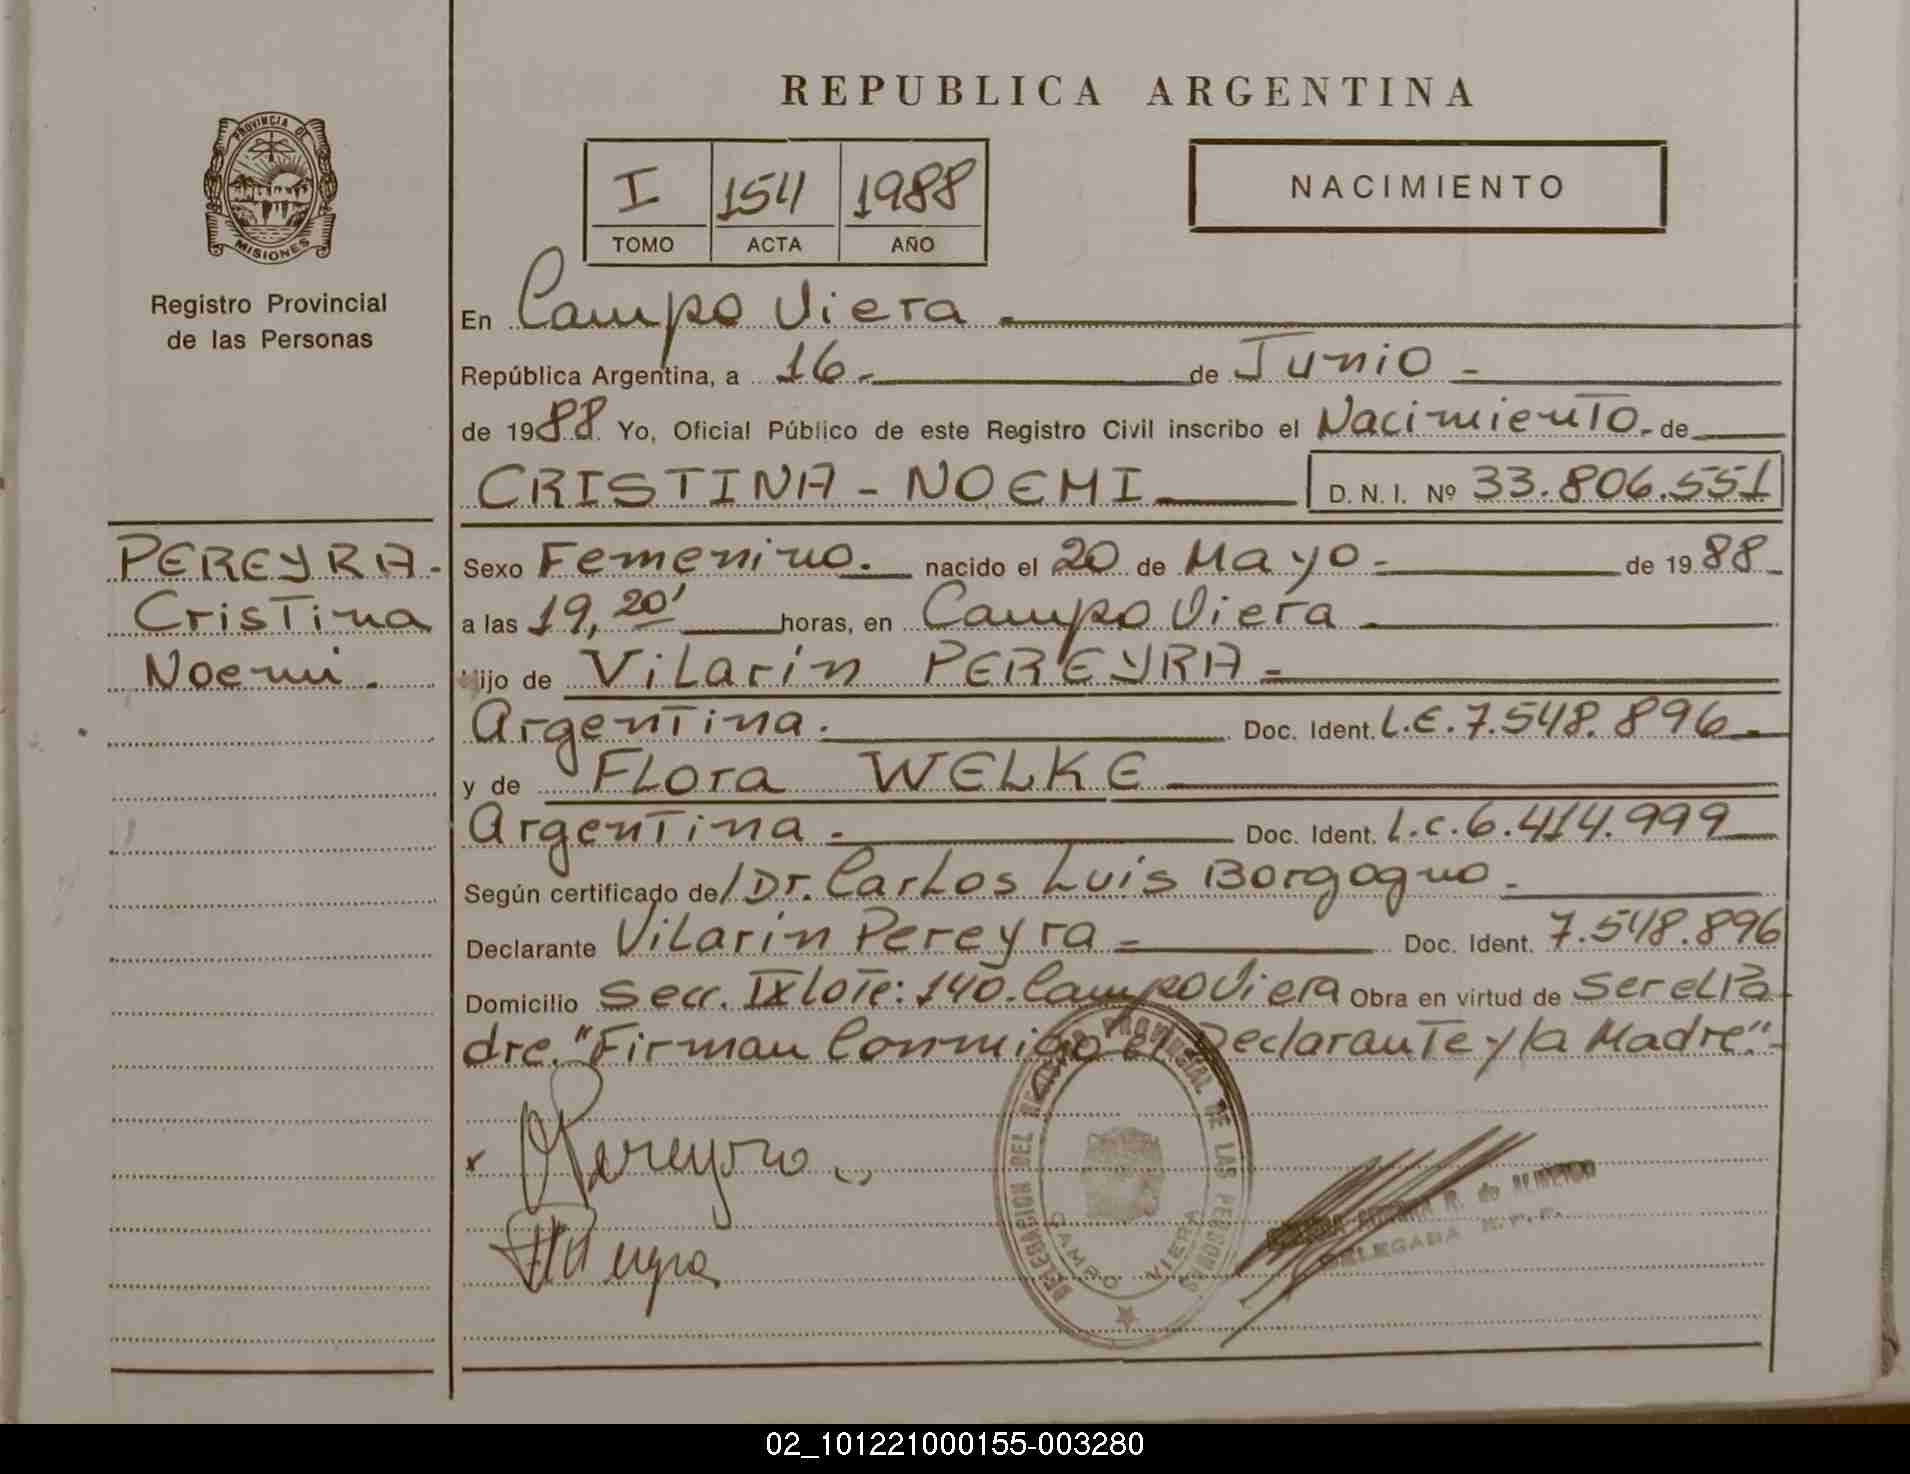 REPUBLICA ARGENTINA
PROVINCIA DE
MISIONES
Registro Provincial
de las Personas
I 154 1988
TOMO ACTA AÑO
NACIMIENTO
En Campo Viera.
República Argentina, a 16. de Junio -
de 1988. Yo, Oficial Público de este Registro Civil inscribo el Nacimiento. de
CRISTINA - NOEMI D. N. I. Nº 33.806.551
PEREYRA.
Cristina
Noemi.
Sexo Femenino. nacido el 20 de Mayo - de 1988
a las 19,20' horas, en Campo Viera
Hijo de Vilarin PEREYRA -
Argentina. Doc. Ident. L.E. 7.548.896
y de FLora WELKE
Argentina. Doc. Ident. L.C. 6.414.999
Según certificado de/ Dr. Carlos Luis Borgogno.
Declarante Vilarin Pereyra - Doc. Ident. 7.548.896
Domicilio Secc. IX lote: 140. Campo Viera Obra en virtud de Ser el Pa
dre. "Firman Conmigo el Declarante y la Madre".-
x Pereyra
DELEGACION DEL REGISTRO PROVINCIAL DE LAS PERSONAS
CAMPO VIERA
R. de
DELEGADA R. P. P.
02_101221000155-003280